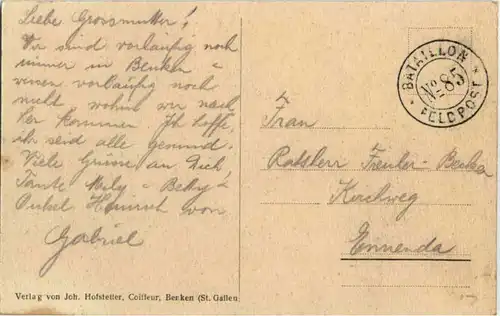 Liebe Grossmutter!
Wir sind vorläufig noch
immer in Benken &
wissen vorläufig noch
nicht wohin wir nach
her kommen Ich hoffe,
ihr seid alle gesund.
Viele Grüsse an Dich
Tante Mely & Betty &
Onkel Heinrich von
Gabriel
Verlag von Joh. Hofstetter, Coiffeur, Benken (St. Gallen
BATAILLON
No 85
FELDPOST
Frau
Ratsherr Freuler-Becker
Kirchweg
Ennenda